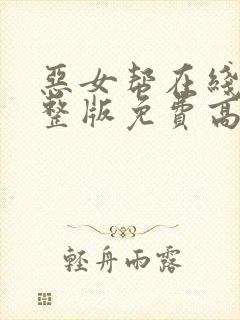 惡女幫在綫
整版免費高
輕舟雨露